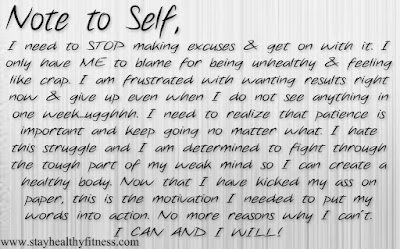 Note to Self,
I need to STOP making excuses & get on with it. I
only have ME to blame for being unhealthy & feeling
like crap. I am frustrated with wanting results right
now & give up even when I do not see anything in
one week...ugghhh. I need to realize that patience is
important and keep going no matter what. I hate
this struggle and I am determined to fight through
the tough part of my weak mind so I can create a
healthy body. Now that I have kicked my ass on
paper, this is the motivation I needed to put my
words into action. No more reasons why I can't.
I CAN AND I WILL!
www.stayhealthyfitness.com